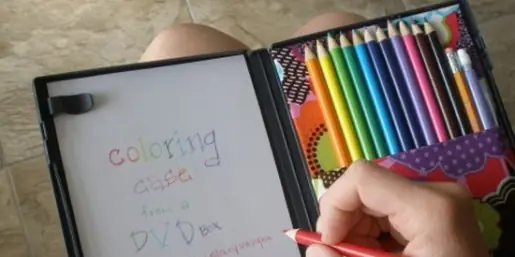 coloring
case
from a
DVD BOX